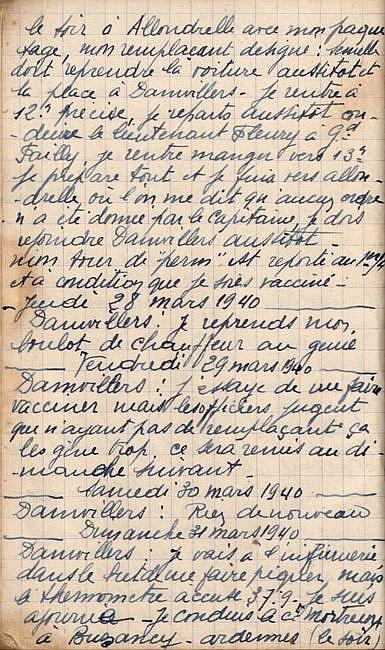 le soir à Allondrelle avec mon paque
tage, mon remplaçant désigné : Semelle
doit reprendre la voiture aussitôt et
la place à Damvillers - je rentre à
12h précise, je reparts aussitôt con-
-duire le lieutenant Fleury à Gd
Failly, je rentre manger vers 13h
je prépare tout et je suis vers allon-
-drelle, où l'on me dit qu'aucun ordre
n'a été donné par le Capitaine, je dois
rejoindre Damvillers aussitôt
mon tour de "perm" est reporté au
et à condition que je sois vacciné -
- Jeudi 28 mars 1940
Damvillers : je reprends mon
boulot de chauffeur au génie
Vendredi 29 mars 1940
Damvillers : j'essaye de me faire
vacciner mais les officiers jugent
que n'ayant pas de remplaçant ça
les gêne trop, ce sera remis au di-
-manche suivant -
Samedi 30 mars 1940
Damvillers : Rien de nouveau
Dimanche 31 mars 1940
Damvillers : je vais à l'infirmerie
dans le but de me faire piquer, mais
le thermomètre accuse 37°9 - je suis
ajourné - je conduis le Ct
à Buzancy - ardennes (le soir)